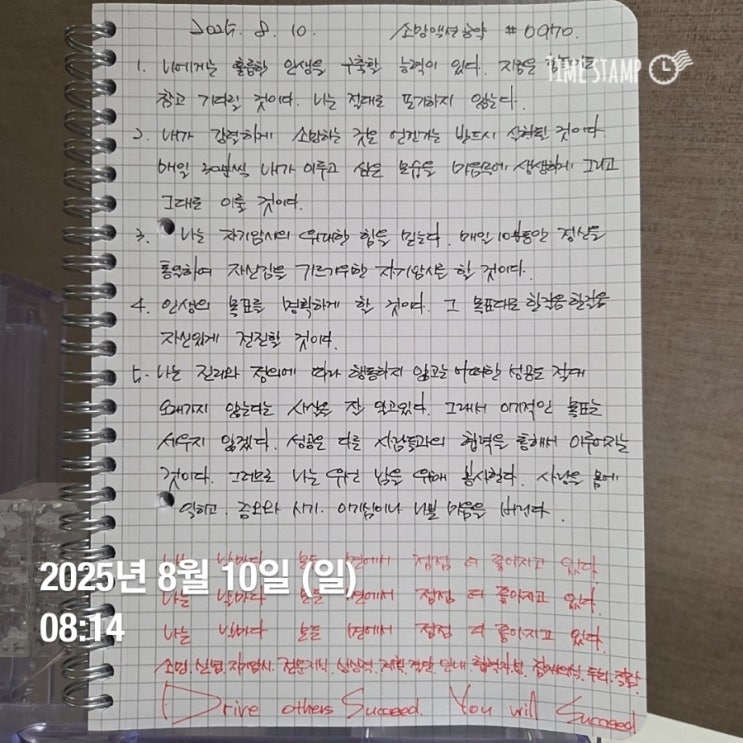 2025. 8. 10. 소망액션공약 #0970
TIMESTAMP
1. 나에게는 훌륭한 인생을 구축할 능력이 있다. 지금은
참고 기다릴 것이다. 나는 절대로 포기하지 않는다.
2. 내가 강렬하게 소망하는 것은 언젠가는 반드시 실현될 것이다.
매일 30분씩 내가 이루고 싶은 모습을 마음속에 생생하게 그리고
그대로 이룰 것이다.
3. 나는 자기암시의 위대한 힘을 믿는다. 매일 10분동안 정신을
통일하여 자신감을 기르기위한 자기암시를 할 것이다.
4. 인생의 목표를 명확하게 할 것이다. 그 목표대로 한걸음 한걸음
자신있게 전진할 것이다.
5. 나는 진리와 정의에 따라 행동하지 않고는 어떠한 성공도 절대
오래가지 않는다는 사실을 잘 알고있다. 그래서 이기적인 목표는
세우지 않겠다. 성공은 다른 사람들과의 협력을 통해서 이루어지는
것이다. 그러므로 나는 먼저 남을 위해 봉사한다. 사랑을 몸에
익히고. 증오와 시기. 이기심이나 나쁜 마음을 버린다.
나는 날마다 모든 면에서 점점 더 좋아지고 있다
2025년 8월 10일 (일)
나는 날마다 모든 면에서 점점 더 좋아지고 있다.
08:14
나는 날마다 모든 면에서 점점 더 좋아지고 있다.
소망. 신념. 자기암시. 전문지식. 상상력. 계획. 결단. 인내. 협력자. 잠재의식. 두뇌. 육감
Drive others Succeed. You will Succeed